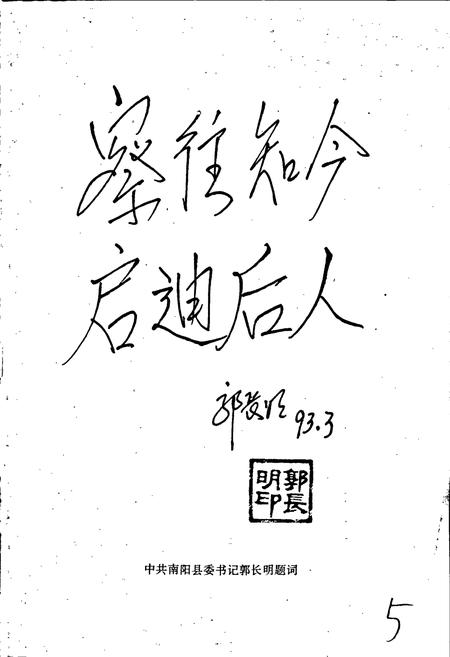 察往知今
启迪后人
郭长明 93.3
郭長
明印
中共南阳县委书记郭长明题词
5